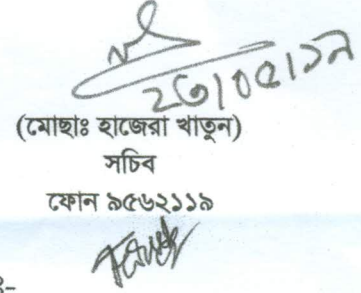 ২৩/০৫/১৯
(মোছাঃ হাজেরা খাতুন)
সচিব
ফোন ৯৫৬২১১৯